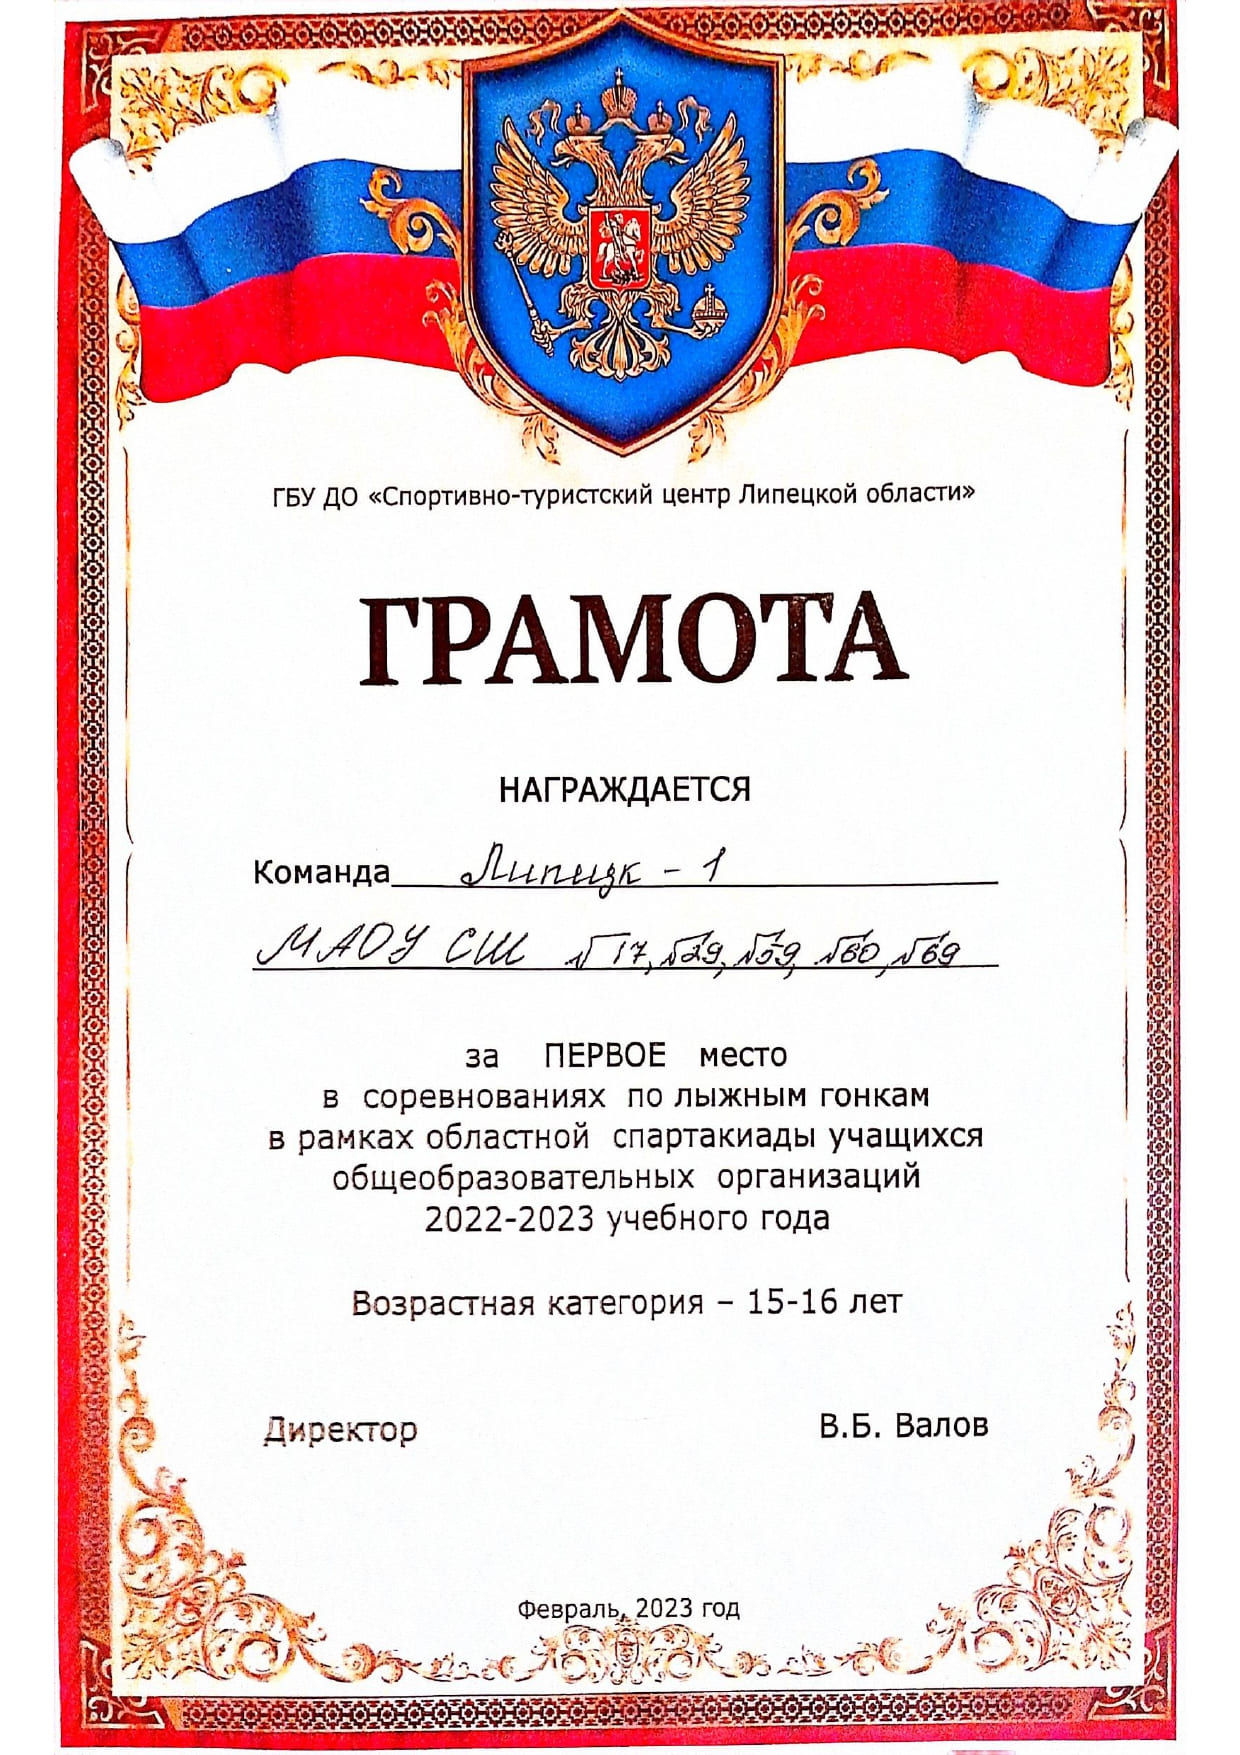 ГБУ ДО «Спортивно-туристский центр Липецкой области»
ГРАМОТА
НАГРАЖДАЕТСЯ
Команда Липецк - 1
МАОУ СШ №17, №29, №59, №60, №69
за ПЕРВОЕ место
в соревнованиях по лыжным гонкам
в рамках областной спартакиады учащихся
общеобразовательных организаций
2022-2023 учебного года
Возрастная категория – 15-16 лет
Директор В.Б. Валов
Февраль, 2023 год